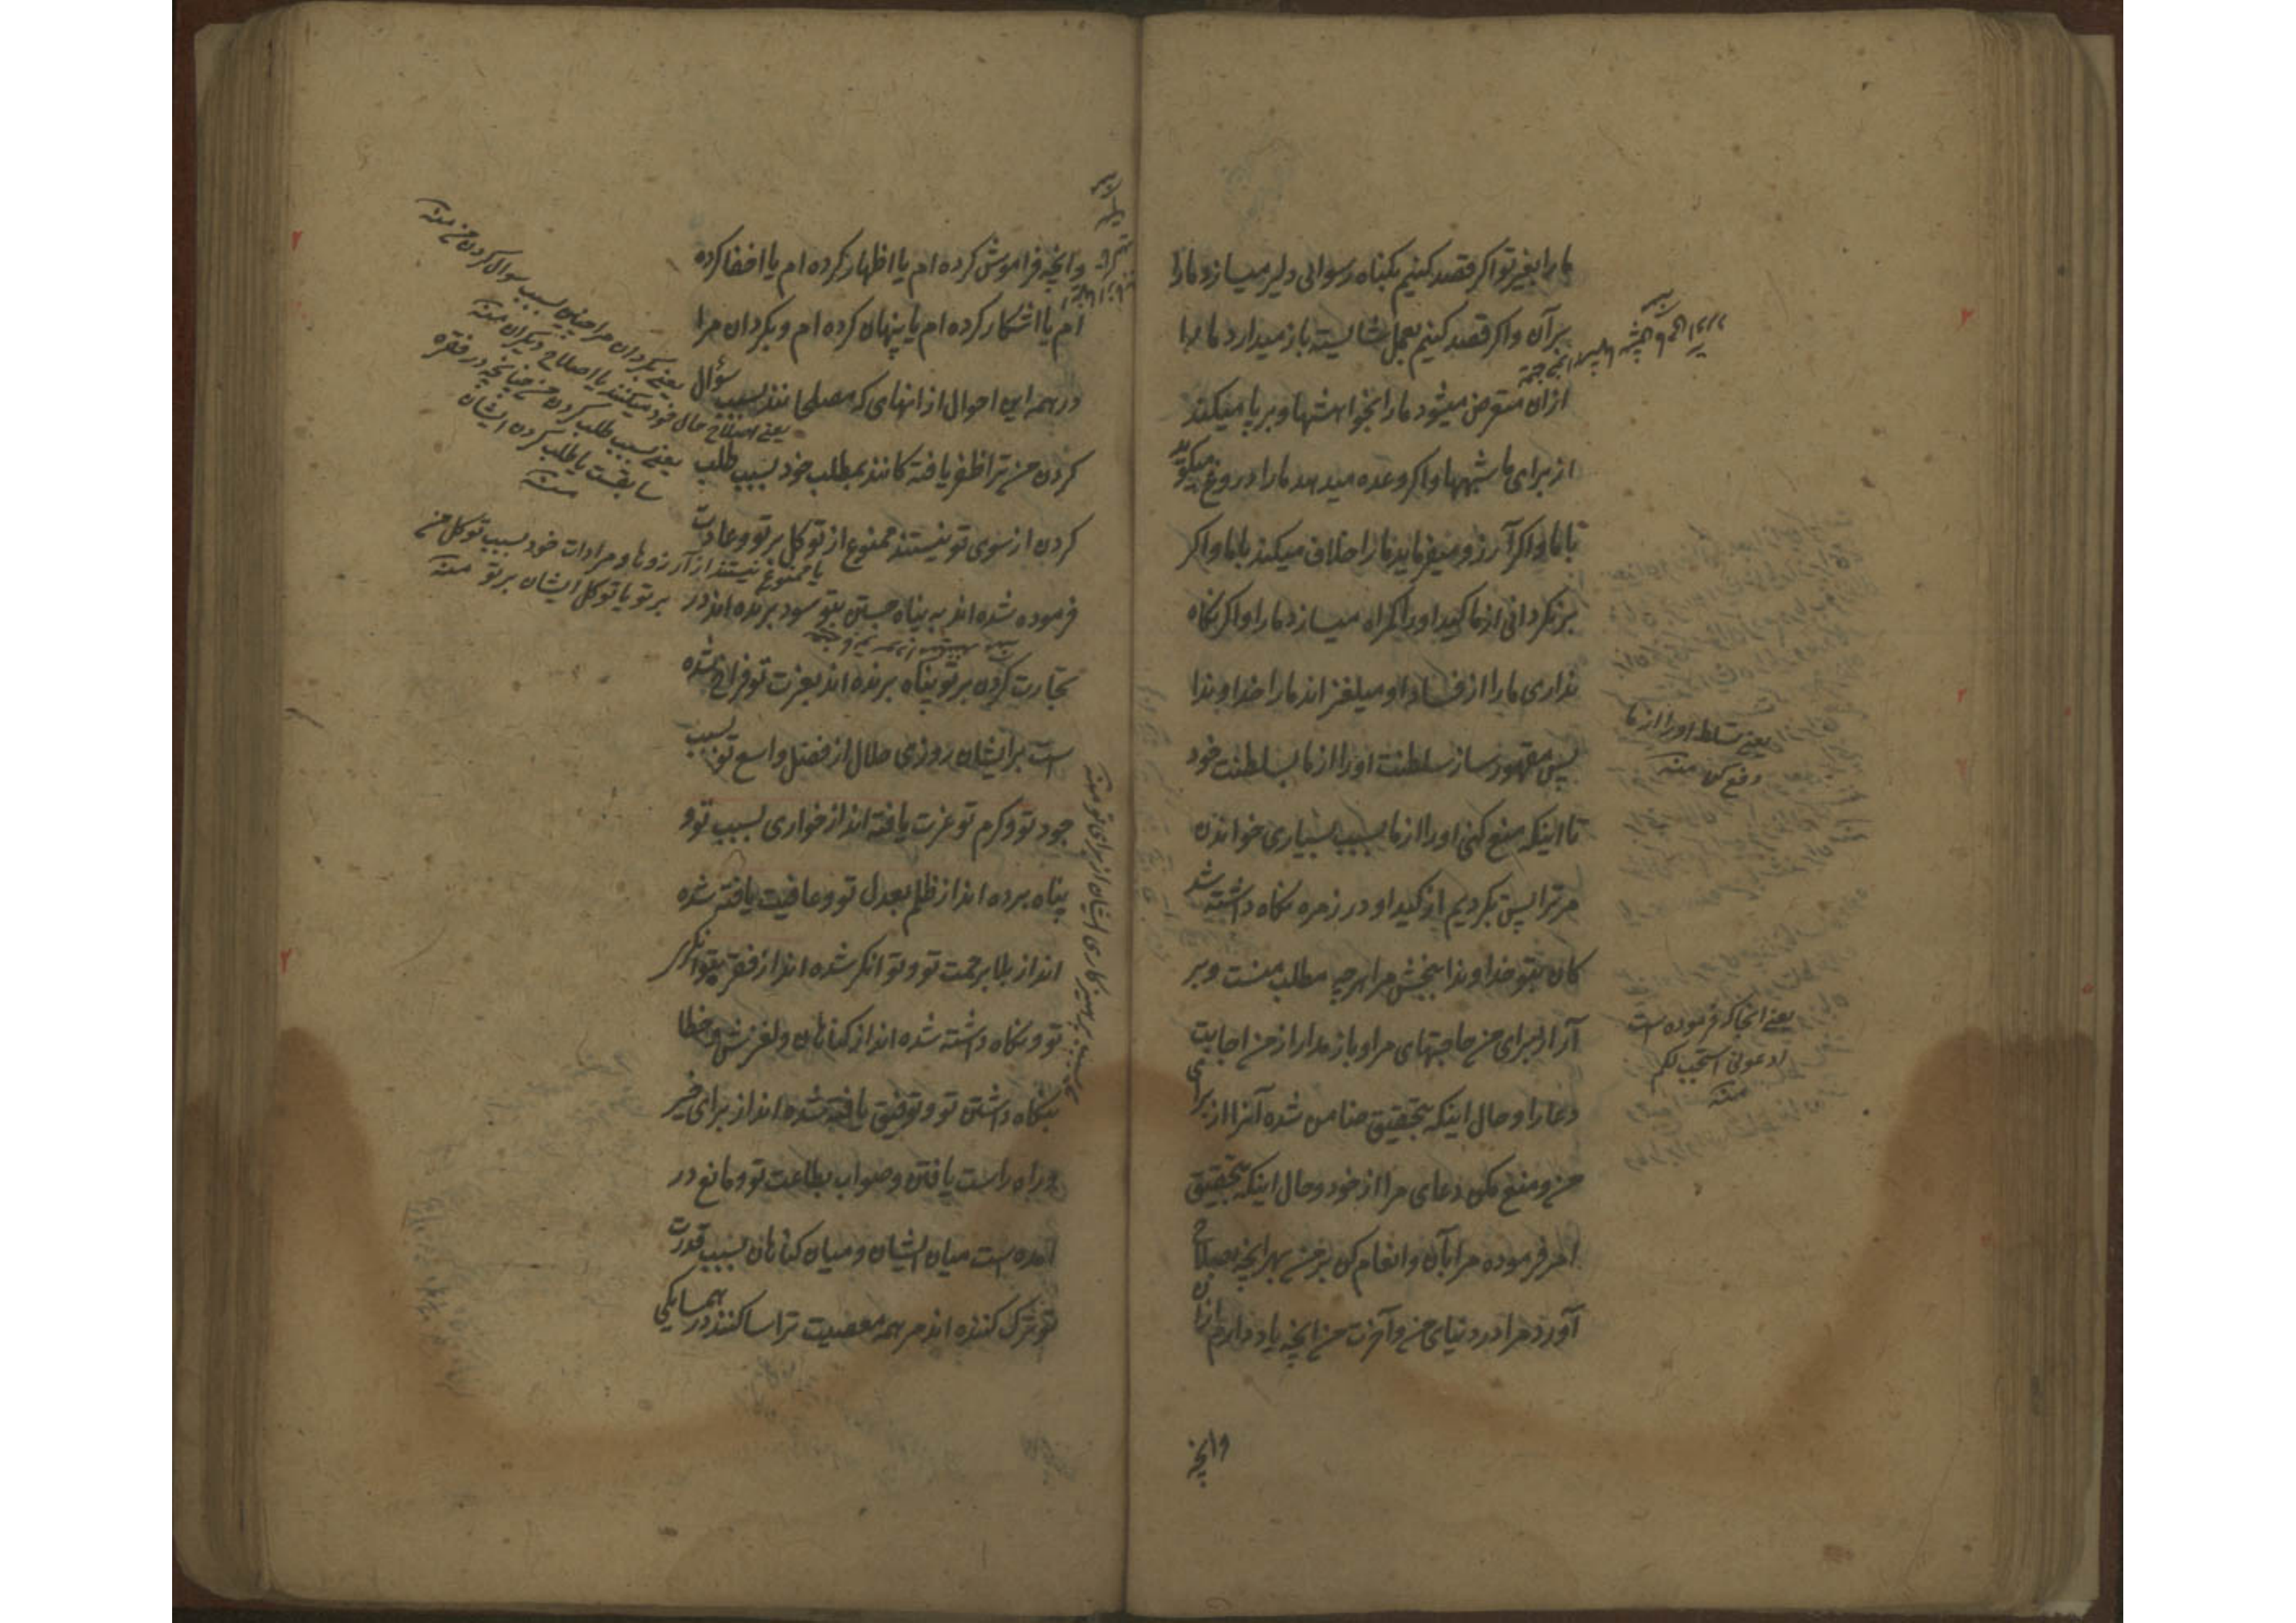 ما را بغیر تو اگر قصد کنیم بگناه رسوائی دلیر میسازد ما را
بر آن و اگر قصد کنیم بعمل شایسته باز میدارد ما را
از ان متعرض میشود ما را بخواهشها و برپا میکند
از برای ما شبهها و اگر وعده میدهد ما را دروغ میکوید
با ما و اگر آرزو میفرماید ما را خلاف میکند با ما و اگر
برنکردانی از ما کید او را گمراه میسازد ما را و اگر نگاه
نداری ما را از فساد او میلغزاند ما را خداوندا
پس مقهور ساز سلطنت او را از ما بسلطنت خود
تا اینکه منع کنی او را از ما بسبب بسیاری خواندن
مر ترا پس بگردیم از کید او در زمره نگاه داشته شد
کان بتو خداوندا ببخش مرا هر چه مطلب منست و بر
آر از برای من حاجتهای مرا و باز مدار از من اجابت
دعا را و حال اینکه بتحقیق ضامن شده آنرا از برای
من و منع مکن دعای مرا از خود و حال اینکه بتحقیق
امر فرموده مرا بآن و انعام کن بر من بهر آنچه بصلاح
آورد مرا در دنیای من و آخرت من آنچه یاد دارم از ان
وانچه
یعنی تسلط او را از ما
دفع کن منه
یعنی انجا که فرموده است
ادعونی استجب لکم
منه
و انچه فراموش کرده ام یا اظهار کرده ام یا اخفا کرده
ام یا اشکار کرده ام یا پنهان کرده ام و بگردان مرا
در همه این احوال از انهای که مصلحانند بسبب سؤال
کردن من ترا ظفر یافته کانند بمطلب خود بسبب طلب
کردن از سوی تو نیستند ممنوع از توکل بر تو و عادت
فرموده شده اند به پناه جستن بتو سود برنده اند در
تجارت کردن بر تو پناه برنده اند بعزت تو فراخ شده
است بر ایشان روزی حلال از فضل واسع تو بسبب
جود تو و کرم تو عزت یافته اند از خواری بسبب تو و
پناه برده اند از ظلم بعدل تو و عافیت یافته شده
اند از بلا برحمت تو و توانکر شده اند از فقر بتوانکری
تو و نگاه داشته شده اند از کناهان و لغزش و خطا
بنگاه داشتن تو و توفیق یافته شده اند از برای خیر
و راه راست یافتن و صواب بطاعت تو و مانع در
آمده است میان ایشان و میان کناهان بسبب قدرت
تو ترک کننده اند مر همه معصیت ترا ساکنند در همسایگی
یعنی بگردان مرا چنین بسبب سوال کردن من منه
یعنی اصلاح حال خود میکنند یا اصلاح دیگران منه
یعنی بسبب طلب کردن من چنانچه در فقره
سابقست یا طلب کردن ایشان
منه
یا ممنوع نیستند از آرزوها و مرادات خود بسبب توکل من
بر تو یا توکل ایشان بر تو منه